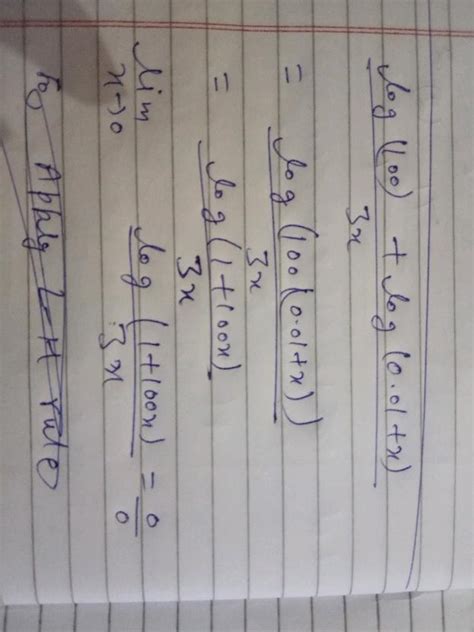 log (100) + log (0.01+x)
3x
= log (100 (0.01+x))
3x
= log (1+100x)
3x
lim log (1+100x) = 0
x→0 3x 0
Apply L-H rule